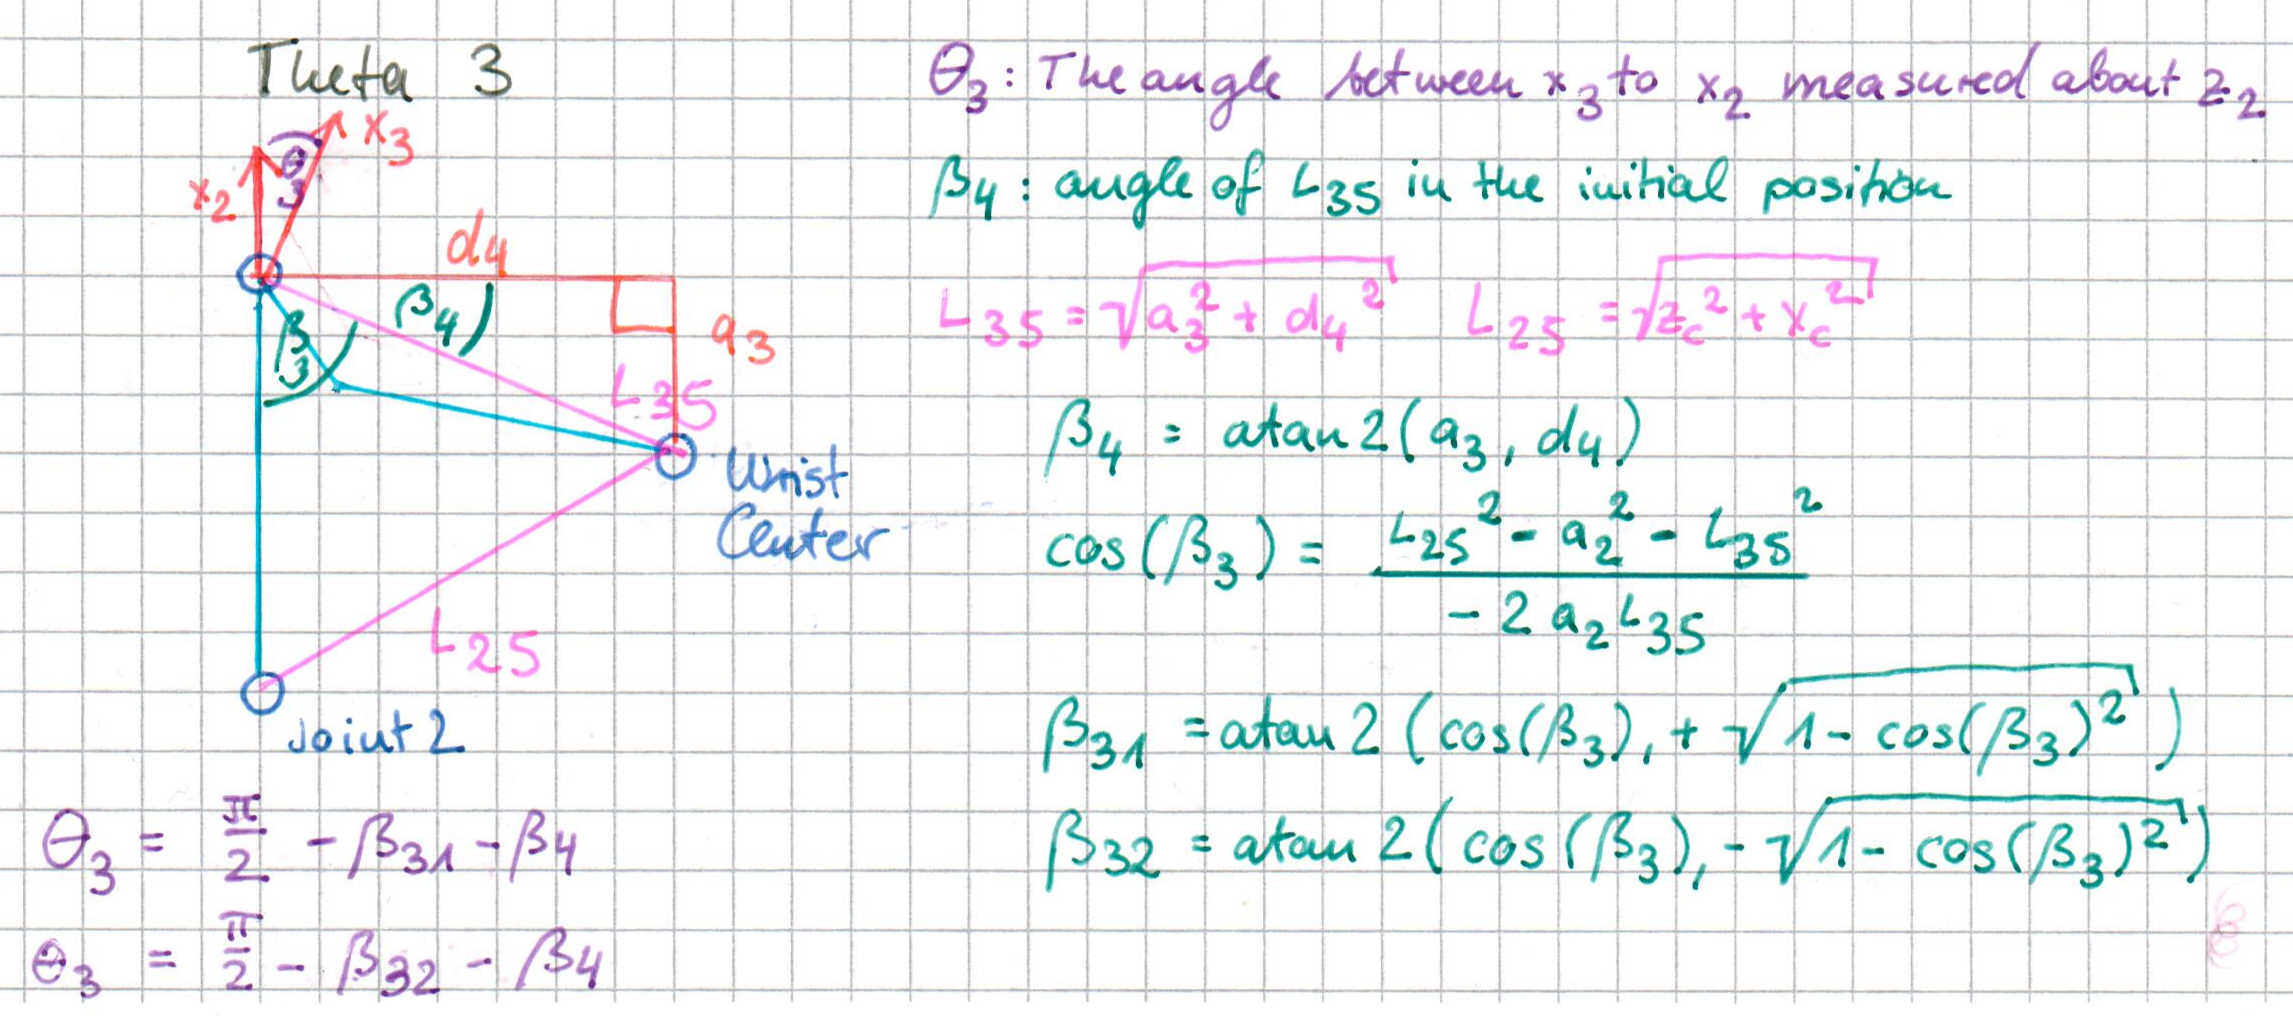 Theta 3
x₃
θ₃
x₂
d₄
β₄
β₃
a₃
L₃₅
Wrist
Center
L₂₅
Joint 2
θ₃ = π/2 - β₃₁ - β₄
θ₃ = π/2 - β₃₂ - β₄
θ₃: The angle between x₃ to x₂ measured about z₂
β₄: angle of L₃₅ in the initial position
L₃₅ = √(a₃² + d₄²) L₂₅ = √(z_c² + x_c²)
β₄ = atan2(a₃, d₄)
cos(β₃) = (L₂₅² - a₂² - L₃₅²) / (-2 a₂ L₃₅)
β₃₁ = atan2(cos(β₃), +√(1 - cos(β₃)²))
β₃₂ = atan2(cos(β₃), -√(1 - cos(β₃)²))